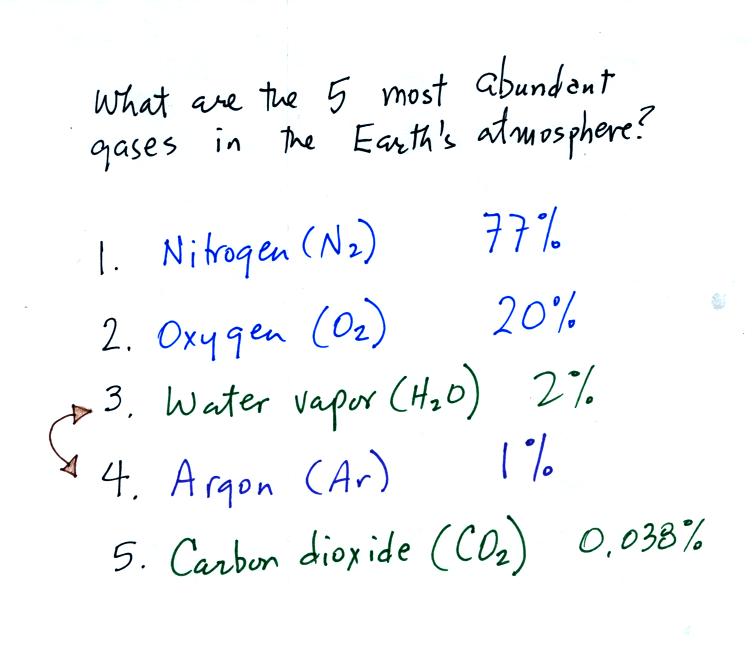 What are the 5 most abundant
gases in the Earth's atmosphere?
1. Nitrogen (N₂) 77%
2. Oxygen (O₂) 20%
3. Water vapor (H₂O) 2%
4. Argon (Ar) 1%
5. Carbon dioxide (CO₂) 0.038%